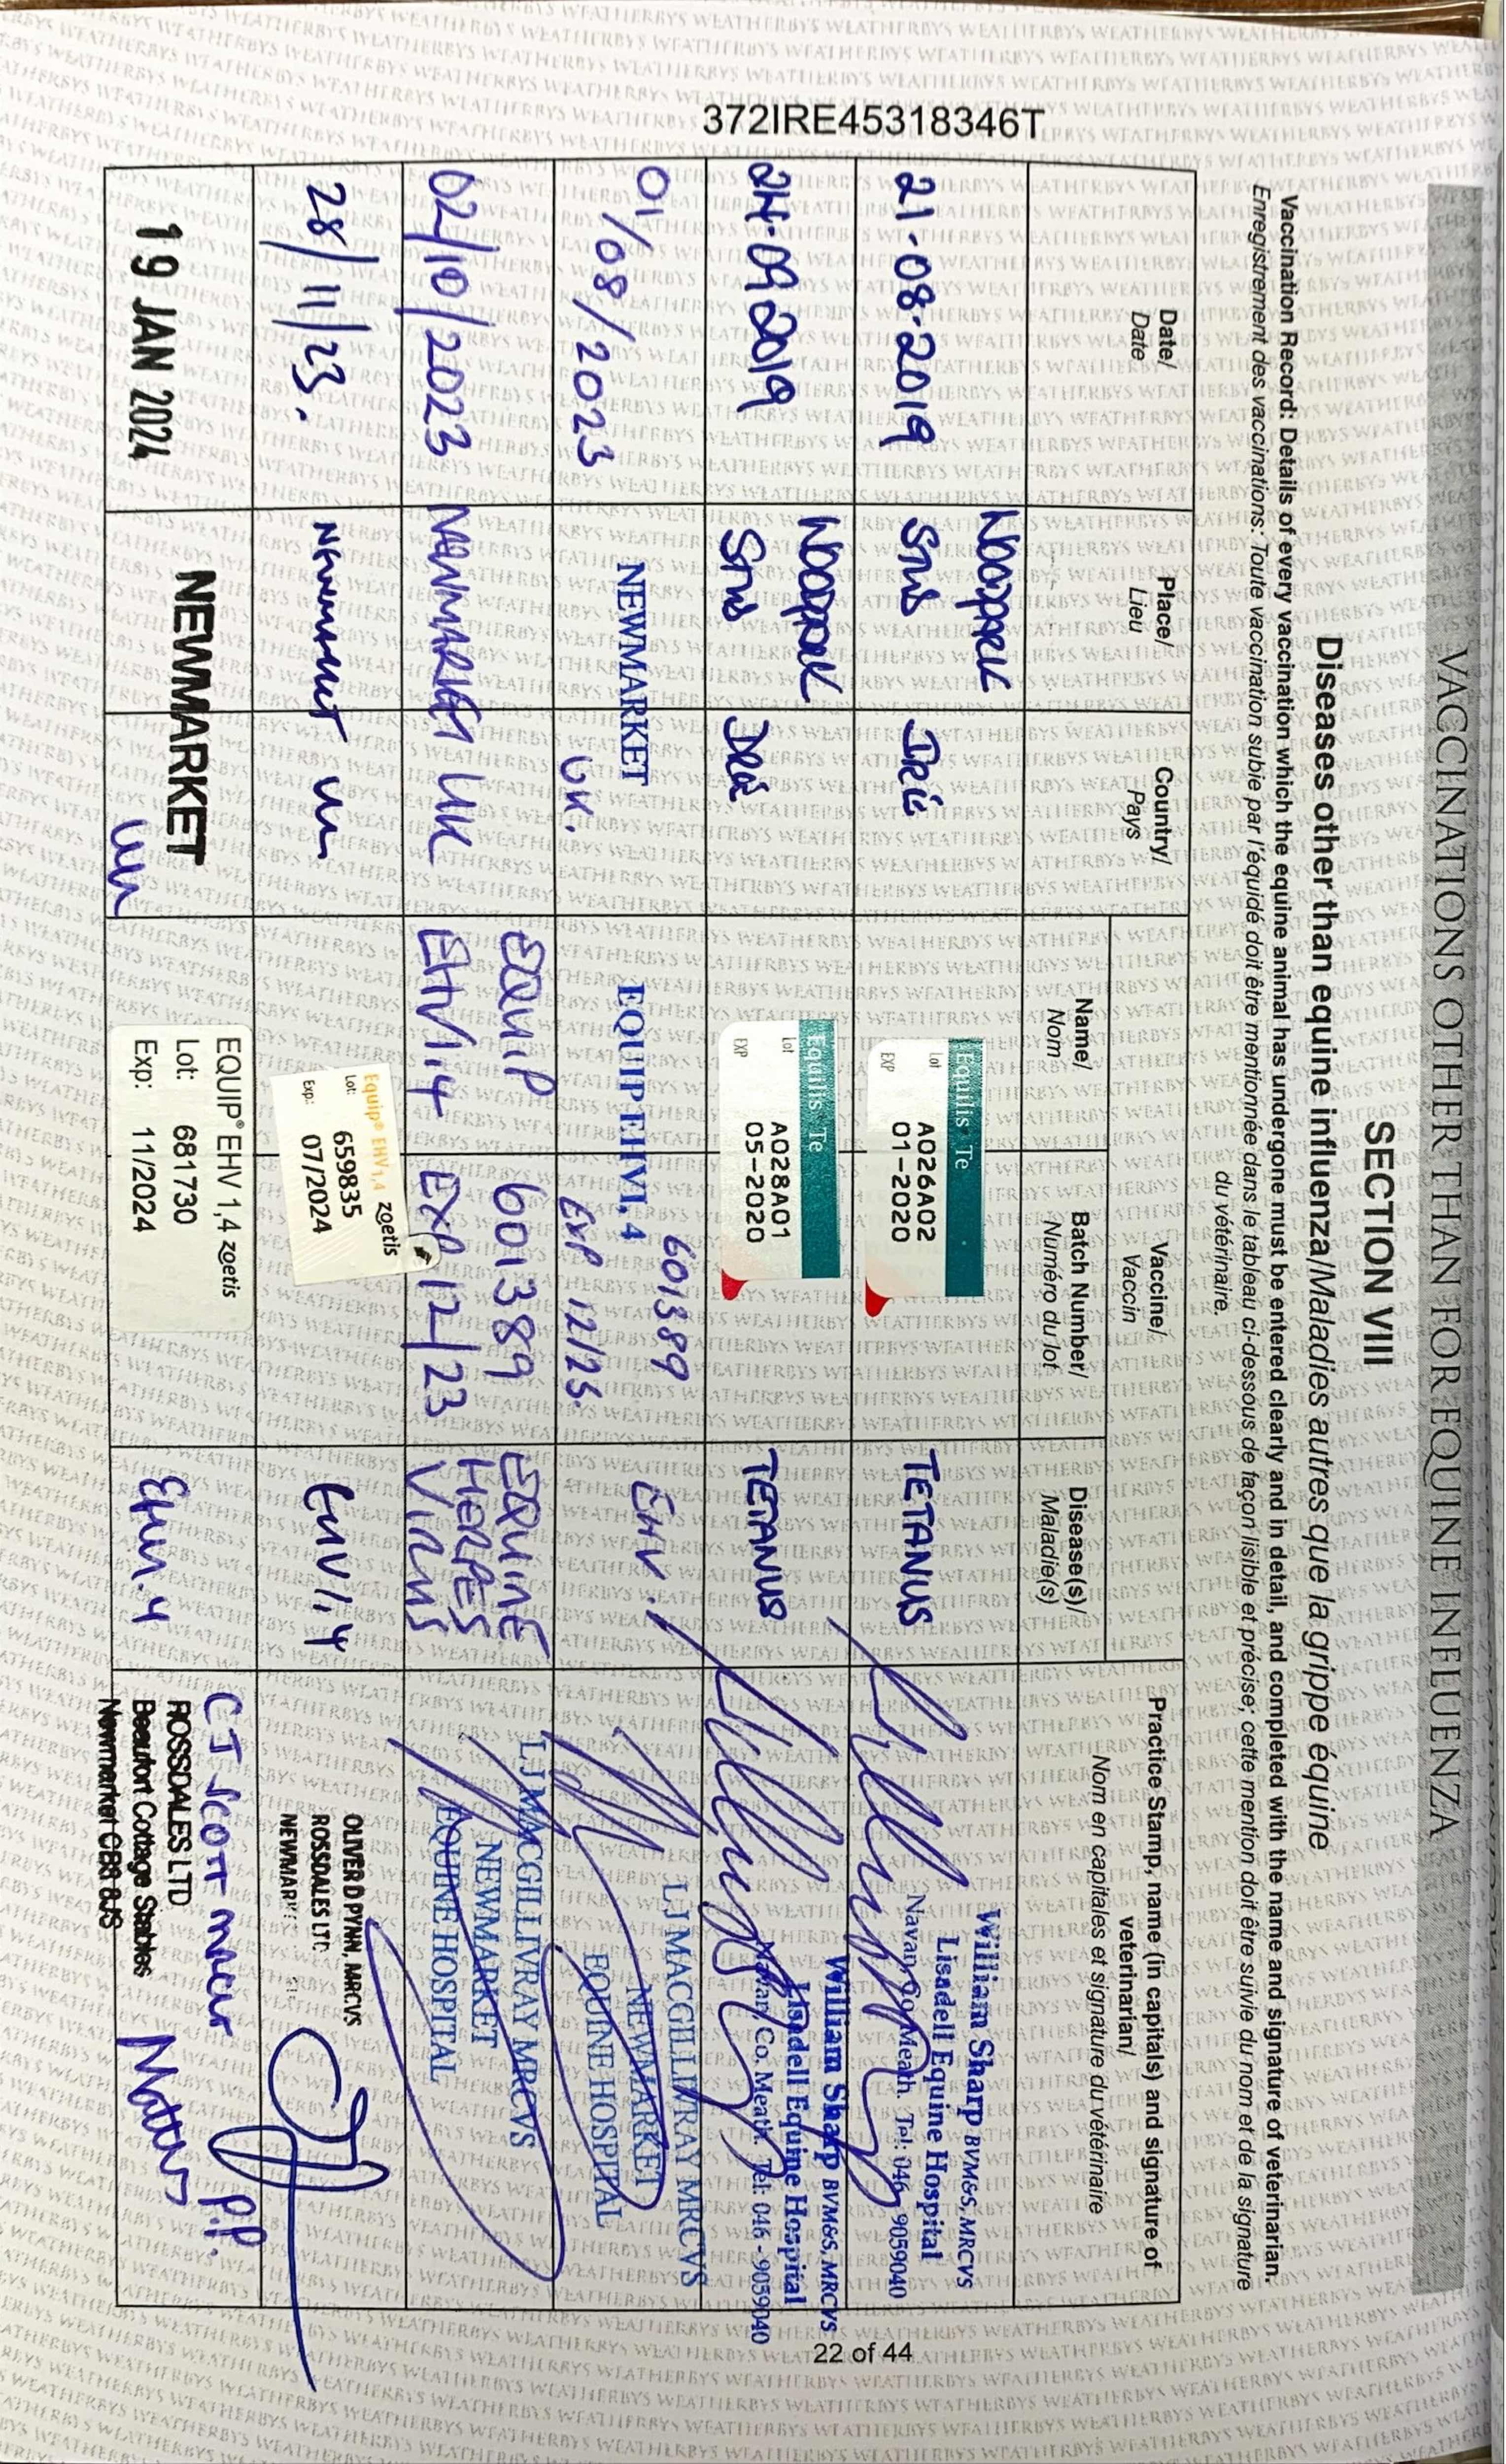 VACCINATIONS OTHER THAN FOR EQUINE INFLUENZA
SECTION VIII
Diseases other than equine influenza/Maladies autres que la grippe équine
Vaccination Record: Details of every vaccination which the equine animal has undergone must be entered clearly and in detail, and completed with the name and signature of veterinarian.
Enregistrement des vaccinations: Toute vaccination subie par l'équidé doit être mentionnée dans le tableau ci-dessous de façon lisible et précise; cette mention doit être suivie du nom et de la signature
du vétérinaire.
Date/
Date
Place/
Lieu
Country/
Pays
Vaccine/
Vaccin
Name/
Nom
Batch Number/
Numéro du lot
Disease(s)/
Maladie(s)
Practice Stamp, name (in capitals) and signature of
veterinarian/
Nom en capitales et signature du vétérinaire
21-08-2019
Woodpark
Stud
Ire
Equilis Te
Lot A026A02
EXP 01-2020
TETANUS
William Sharp BVM&S, MRCVS
Lisadell Equine Hospital
Navan, Co. Meath. Tel: 046 - 9059040
24-09 2019
Woodpark
Stud
Ire
Equilis Te
Lot A028A01
EXP 05-2020
TETANUS
William Sharp BVM&S, MRCVS
Lisadell Equine Hospital
Navan, Co. Meath. Tel: 046 - 9059040
01/08/2023
NEWMARKET
UK.
EQUIP EHV1, 4
601389
EXP 12/23.
EHV.
LJ MACGILLIVRAY MRCVS
NEWMARKET
EQUINE HOSPITAL
02/10/2023
NEWMARKET UK
EQUIP
EHV1.4
601389
EXP 12/23
EQUINE
HERPES
VIRUS
LJ MACGILLIVRAY MRCVS
NEWMARKET
EQUINE HOSPITAL
28/11/23.
Newmarket UK
Equip® EHV1,4 zoetis
Lot: 659835
Exp: 07/2024
EHV1,4
OLIVER D PYNN, MRCVS
ROSSDALES LTD
NEWMARKET
19 JAN 2024
NEWMARKET
UK
EQUIP® EHV 1,4 zoetis
Lot: 681730
Exp: 11/2024
EHV1.4
P.P.
ROSSDALES LTD
Beaufort Cottage Stables
Newmarket CB8 8JS
372IRE45318346T
22 of 44